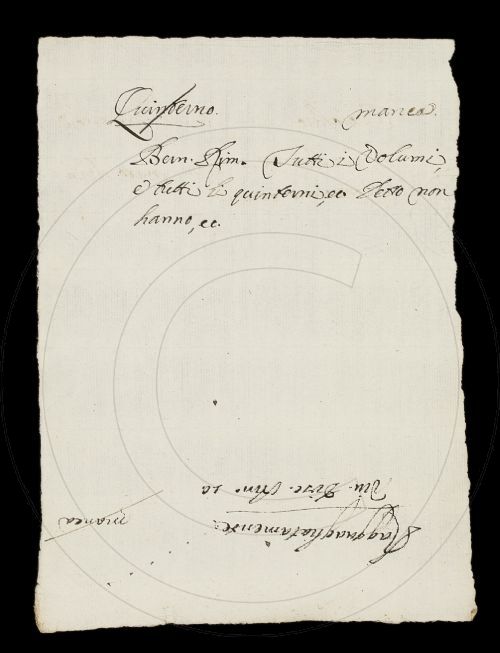 Quinterno. manca.
Bern. Rim. Tutti i Volumi,
e tutti li quinterni, ec. Petto non
hanno, ec.
Ragguagliatamente.
manca